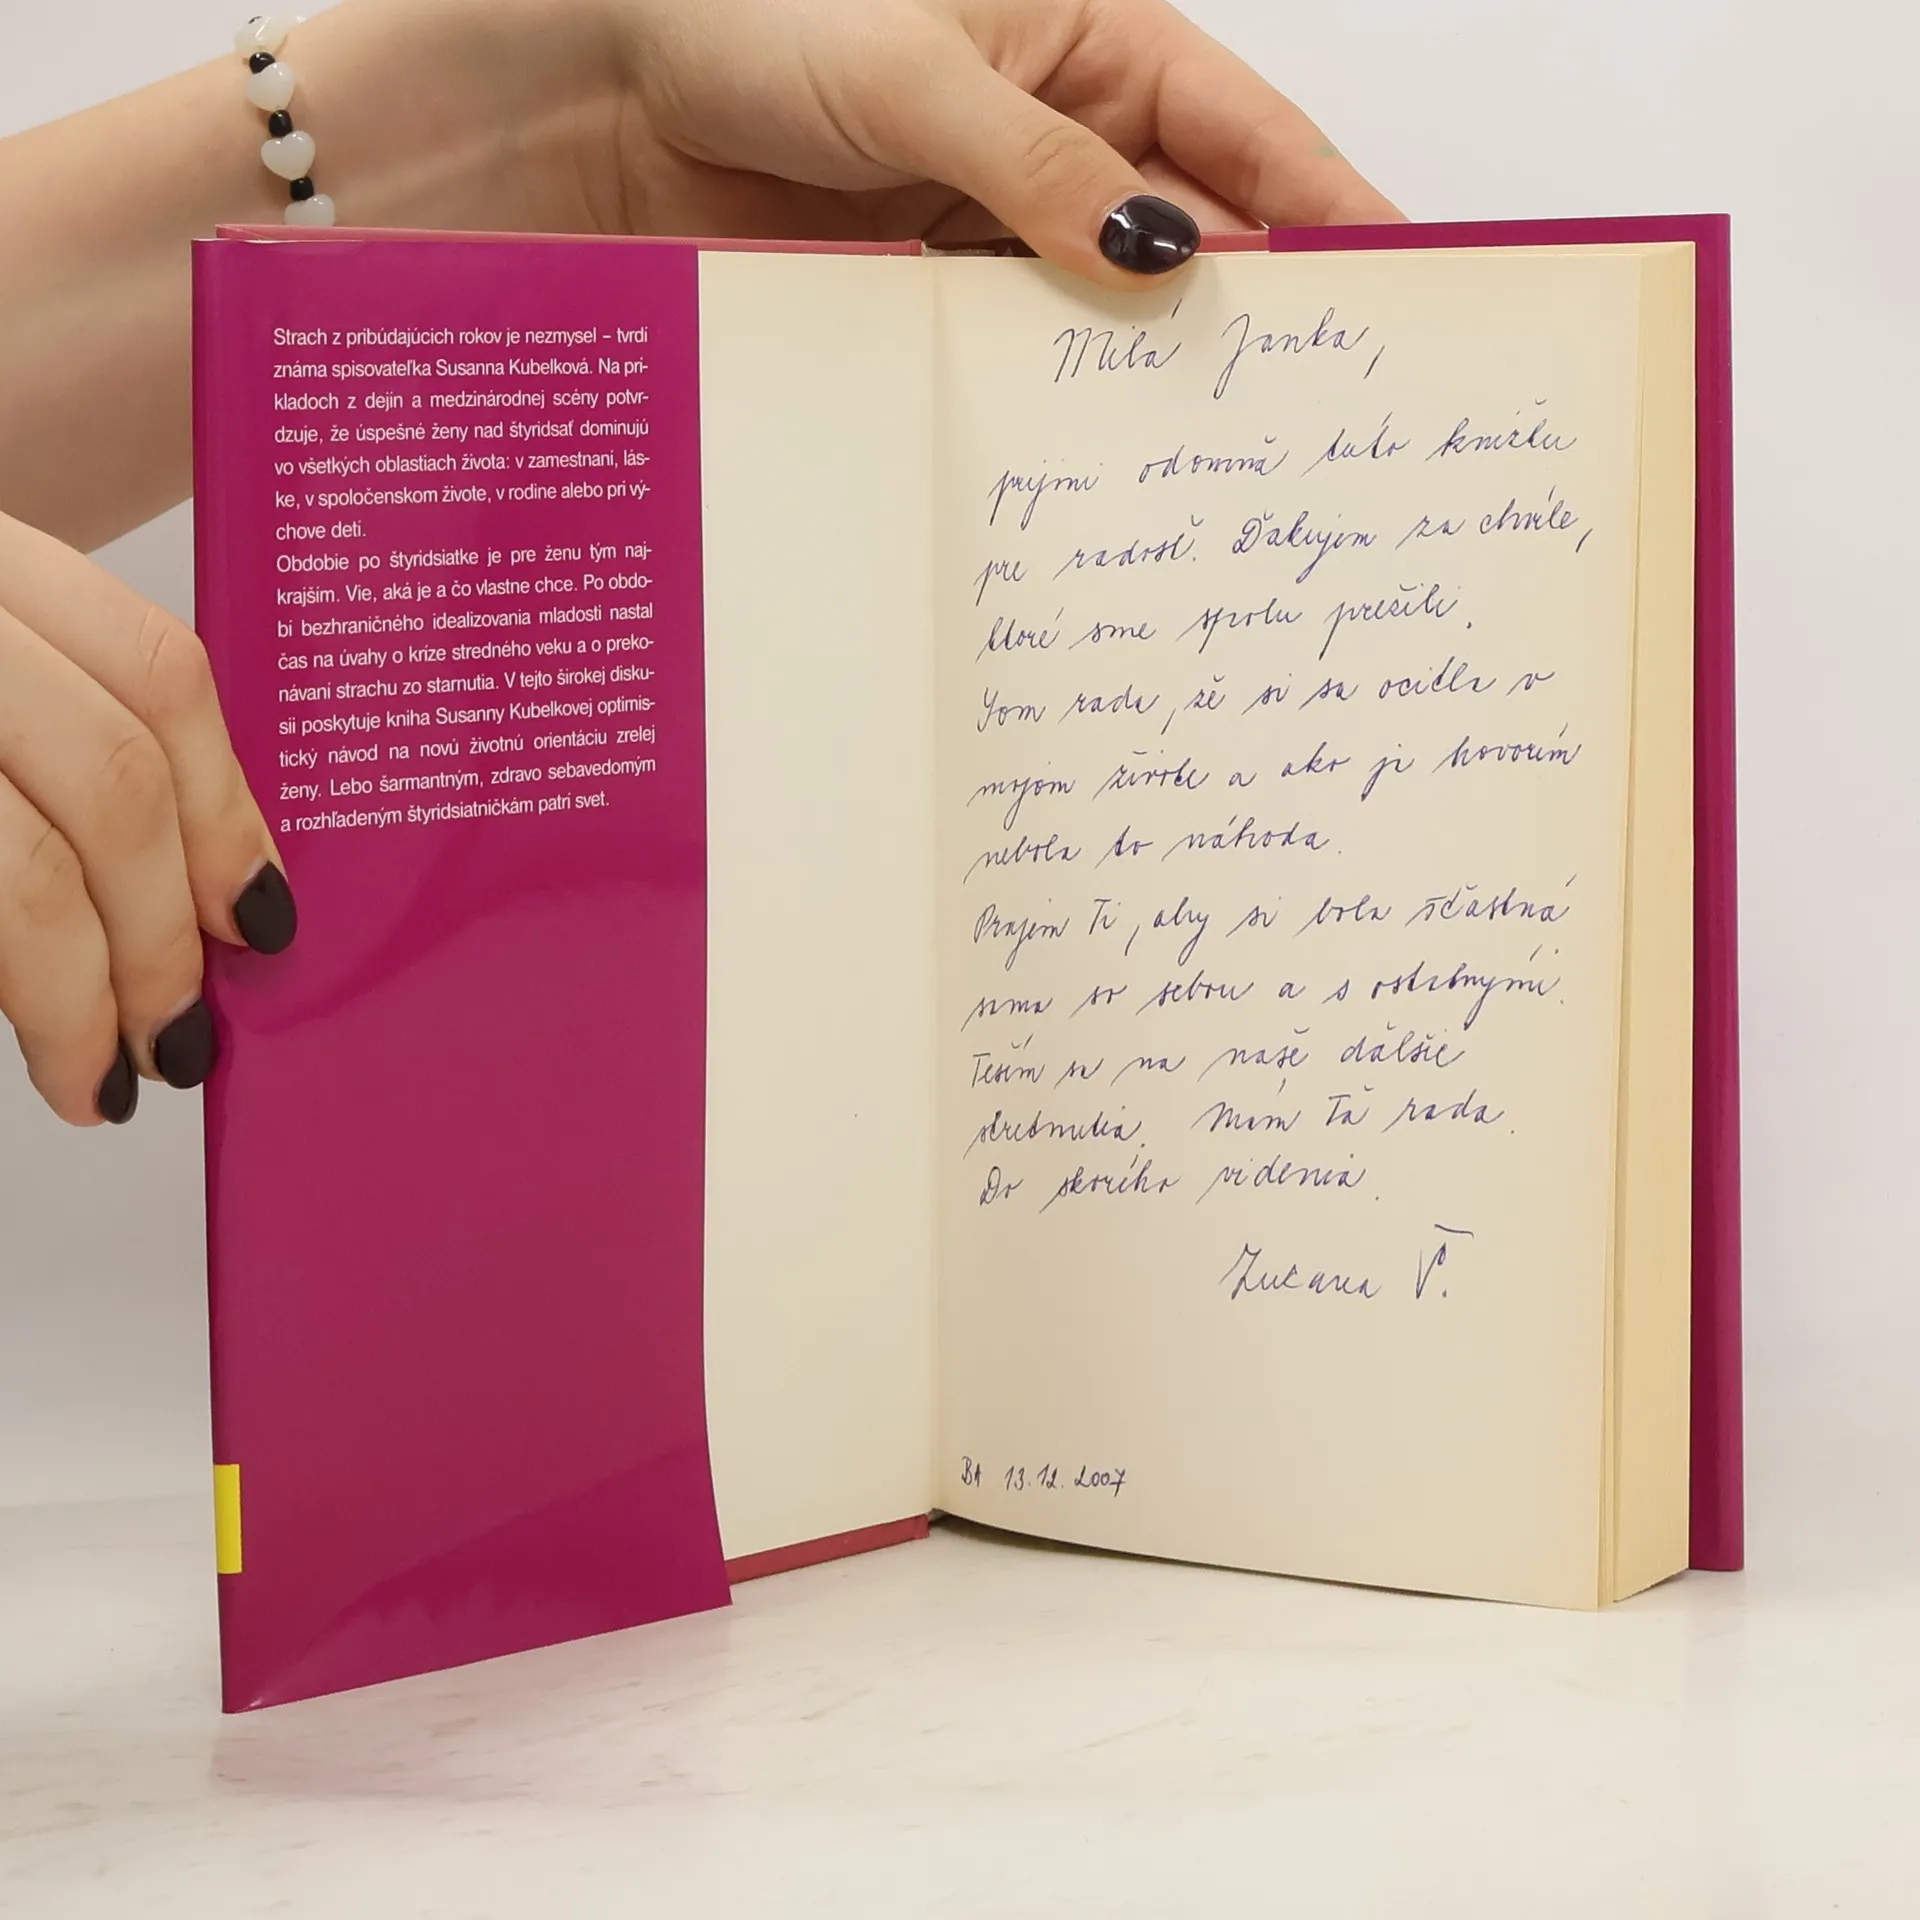 Strach z pribúdajúcich rokov je nezmysel – tvrdí
známa spisovateľka Susanna Kubelková. Na prí-
kladoch z dejín a medzinárodnej scény potvr-
dzuje, že úspešné ženy nad štyridsať dominujú
vo všetkých oblastiach života: v zamestnaní, lás-
ke, v spoločenskom živote, v rodine alebo pri vý-
chove detí.
Obdobie po štyridsiatke je pre ženu tým naj-
krajším. Vie, aká je a čo vlastne chce. Po obdo-
bí bezhraničného idealizovania mladosti nastal
čas na úvahy o kríze stredného veku a o preko-
návaní strachu zo starnutia. V tejto širokej disku-
sii poskytuje kniha Susanny Kubelkovej optimis-
tický návod na novú životnú orientáciu zrelej
ženy. Lebo šarmantným, zdravo sebavedomým
a rozhľadeným štyridsiatničkám patrí svet.
Milá Janka,
prijmi odomňa túto knižku
pre radosť. Ďakujem za chvíle,
ktoré sme spolu prežili.
Som rada, že si sa ocitla v
mojom živote a ako ja hovorím
nebola to náhoda.
Prajem Ti, aby si bola šťastná
sama so sebou a s ostatnými.
Teším sa na naše ďalšie
stretnutia. Mám Ťa rada.
Do skorého videnia.
Zuzana V.
BA 13.12.2007